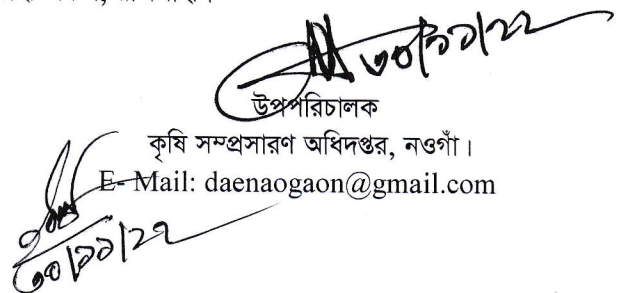 ৩০/১১/২২
উপপরিচালক
কৃষি সম্প্রসারণ অধিদপ্তর, নওগাঁ।
E- Mail: daenaogaon@gmail.com
৩০/১১/২২